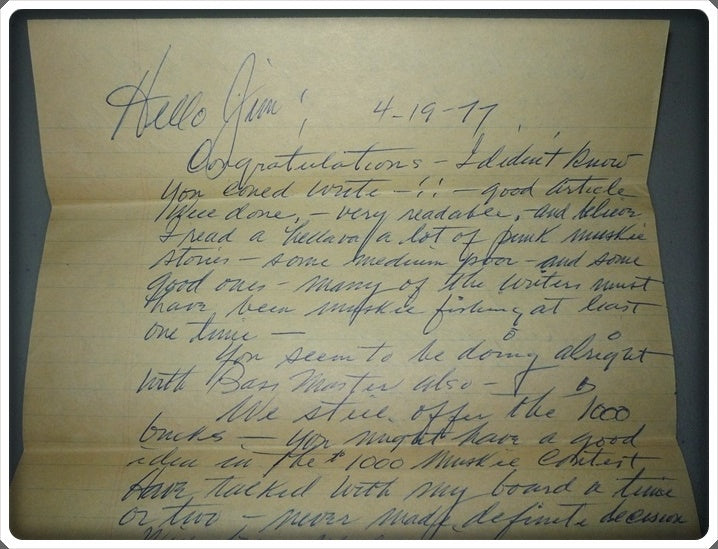 Hello Jim! 4-19-77
Congratulations - I didn't know
you coued write - !! - good article
Well done, - very readable, - and believe
I read a hellava a lot of punk muskie
stories - some medium poor - and some
good ones - many of the writers must
have been muskie fishing at least
one time -
You seem to be doing alright
with Bass Master also -
We still offer the 1000
bucks - you might have a good
idea in the $1000 Muskie Contest
Have talked with my board a time
or two - never made definite decision